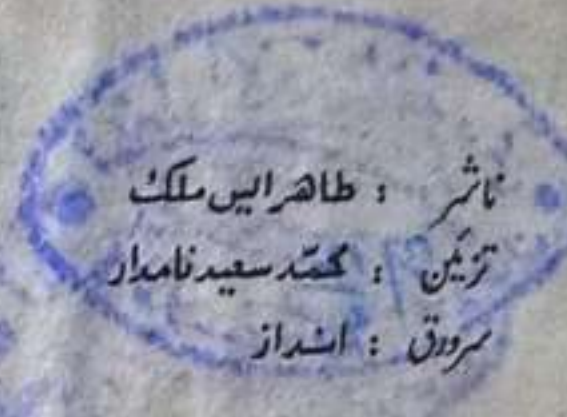 ناشر : طاھر ایس ملک
تزئین : محمّد سعید نامدار
سرورق : انداز